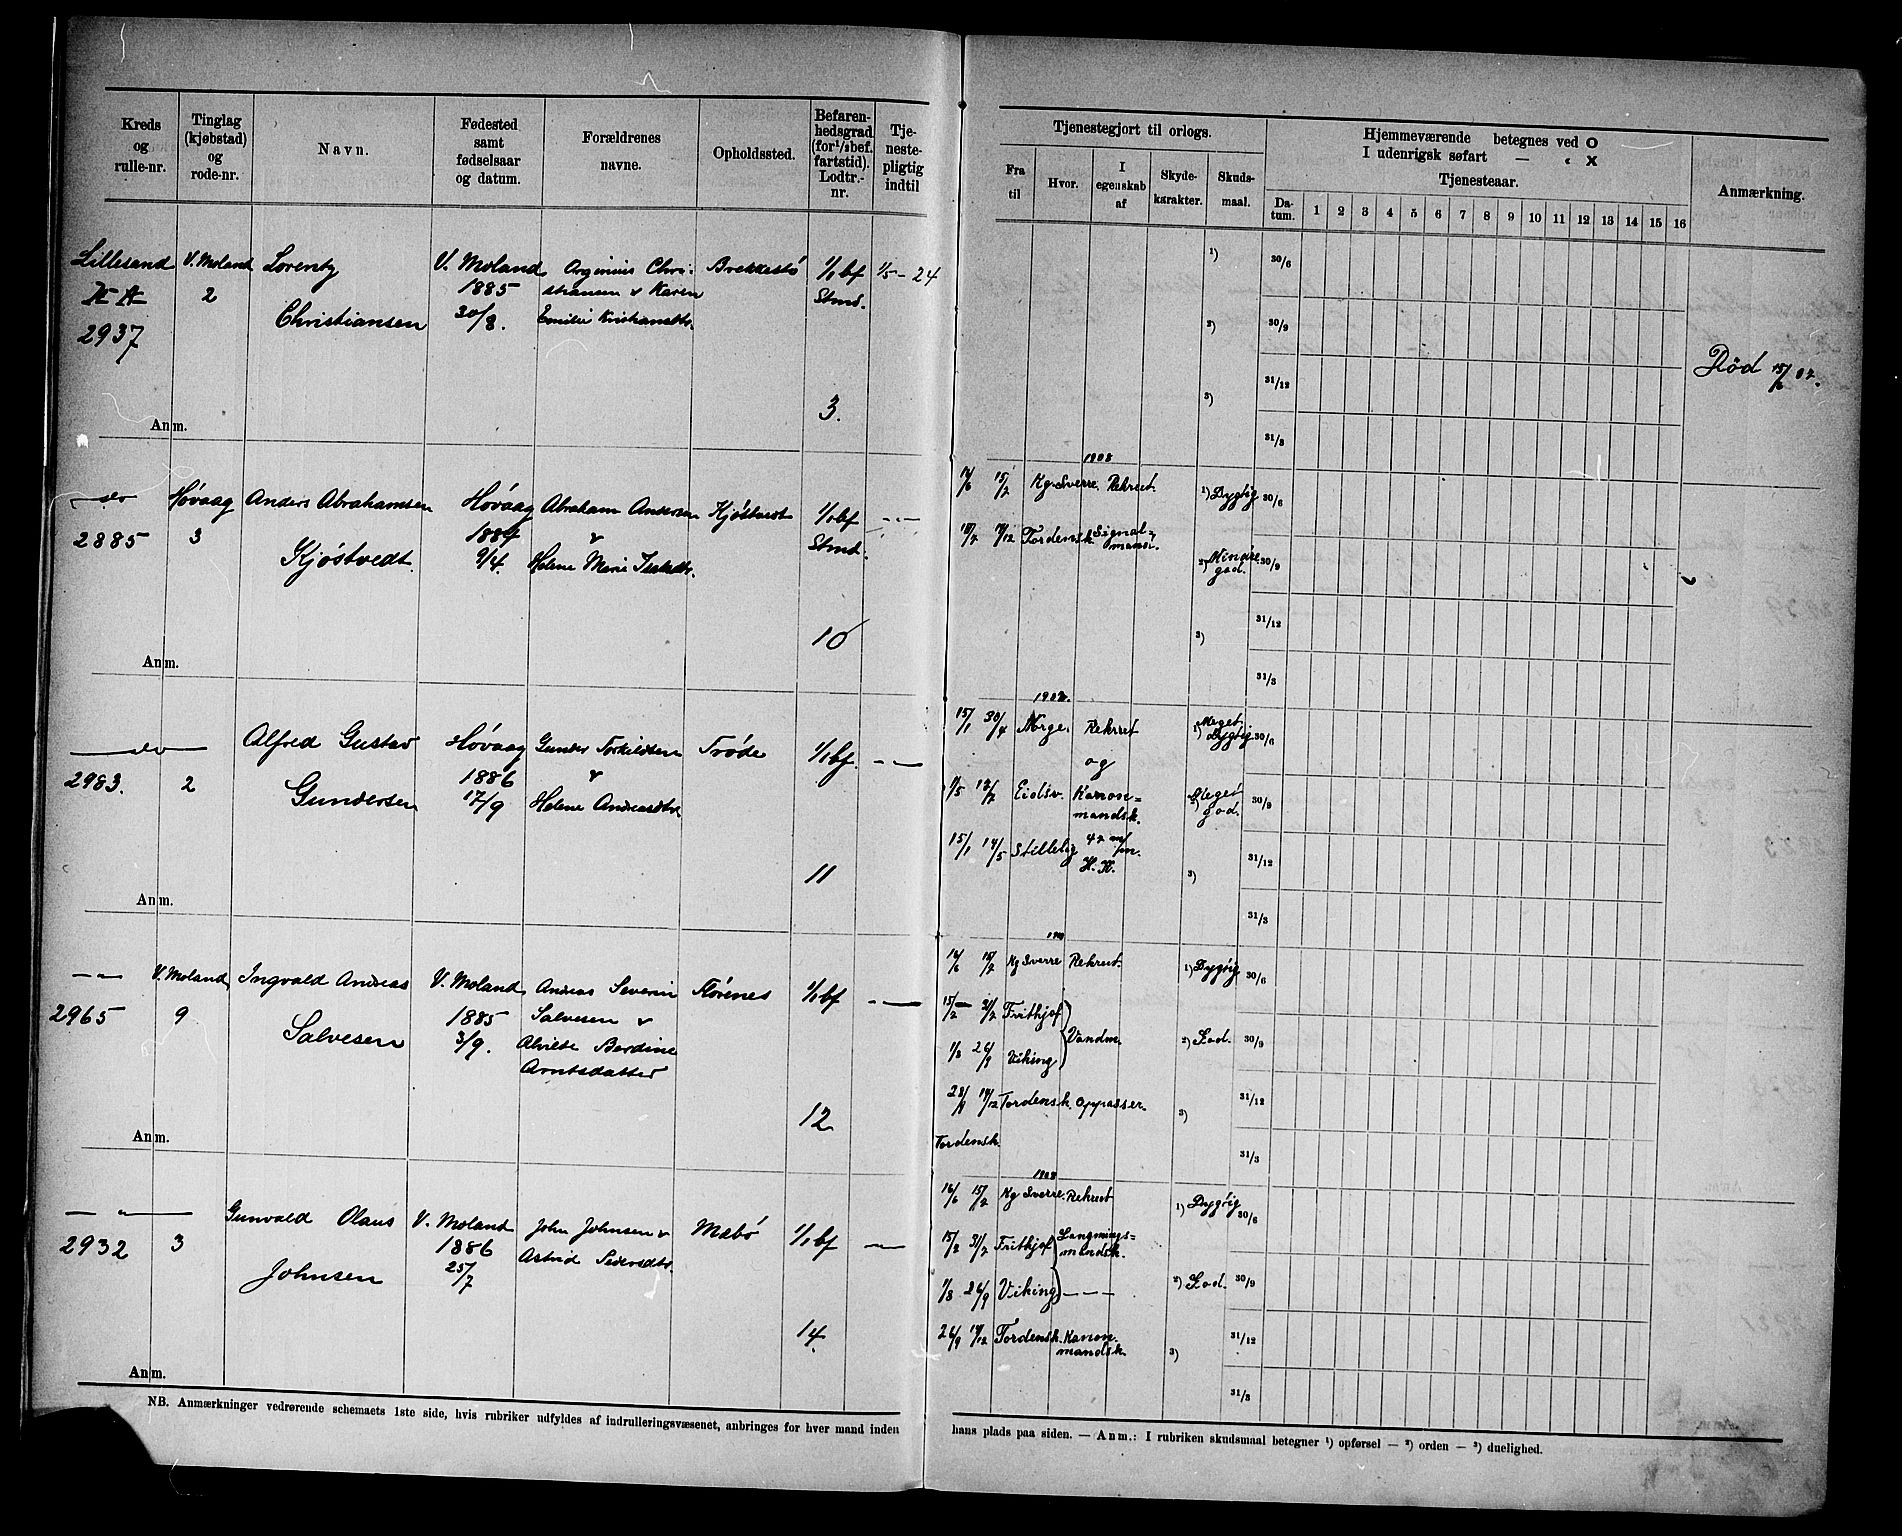 Kreds og rulle-nr.
Tinglag (kjøbstad) og rode-nr.
Navn.
Fødested samt fødselsaar og datum.
Forældrenes navne.
Opholdssted.
Befaren-hedsgrad (for 1/1 bef. fartstid). Lodtr.-nr.
Tje-neste-pligtig indtil
Tjenestegjort til orlogs.
Fra til
Hvor.
I egenskab af
Skyde-karakter.
Skuds-maal.
Hjemmeværende betegnes ved O
I udenrigsk søfart — « X
Tjenesteaar.
Da-tum.
1 2 3 4 5 6 7 8 9 10 11 12 13 14 15 16
Anmærkning.
Lillesand V. Moland Lorentz V. Moland Brekkestø 1/1 bf 1/5 - 24
2 1885 Stmd.
2937 Christiansen 30/8.
¹) 30/6
²) 30/9
³) 31/12
31/3
Død
3.
Anm.
— do Høvaag Anders Abrahamsen Høvaag Abraham Andersen Kjøstvedt 1/1 bf — " —
2885 3 Kjøstvedt 1884 & Stmd.
9/4. Helene Marie
1908
16/6 15/7 Kg. Sverre. Rekrut. ¹) Dygtig 30/6
17/12 Tordensk. Signal-mandsk. ²) Mindre god. 30/9
³) 31/12
31/3
10
Anm.
— do — Alfred Gustav Høvaag Gunder Torkildsen Trøde 1/1 bf. — " —
2983. 2 Gundersen 1886 &
17/9 Helene Andreasdtr.
15/1 30/4 Norge. Rekrut ¹) Meget Dygtig. 30/6
og
1/5 Eidsv. Kanon-mandsk. ²) Meget god. 30/9
15/1 14/5 Stillelig 42 m/m. H. K. ³) 31/12
31/3
11
Anm.
— " — V. Moland Ingvald Andreas V. Moland Andreas Severin 1/1 bf — " —
2965 9 Salvesen 1885 Salvesen &
3/9. Alvilde Berdine
Arntsdatter
16/6 15/7 Kg Sverre Rekrut. ¹) Dygtig 30/6
15/7 — 31/7 Frithjof
1/8 26/9 Viking } Vandm. ²) God. 30/9
14/12 Tordensk. Oppasser. ³) 31/12
Tordensk. 31/3
12
Anm.
— " — Gunvald Olaus V. Moland John Johnsen & Mæbø 1/1 bf — " —
2932 3 Johnsen 1886 Astrid
25/7
1908
16/6 15/7 Kg Sverre. Rekrut ¹) Dygtig 30/6
15/7 31/7 Frithjof
1/8 26/9 Viking — " — ²) God. 30/9
26/9 14/12 Tordensk. Kanon-mandsk. ³) 31/12
31/3
14
Anm.
NB. Anmærkninger vedrørende schemaets 1ste side, hvis rubriker udfyldes af indrulleringsvæsenet, anbringes for hver mand inden
hans plads paa siden. — Anm.: I rubriken skudsmaal betegner ¹) opførsel — ²) orden — ³) duelighed.